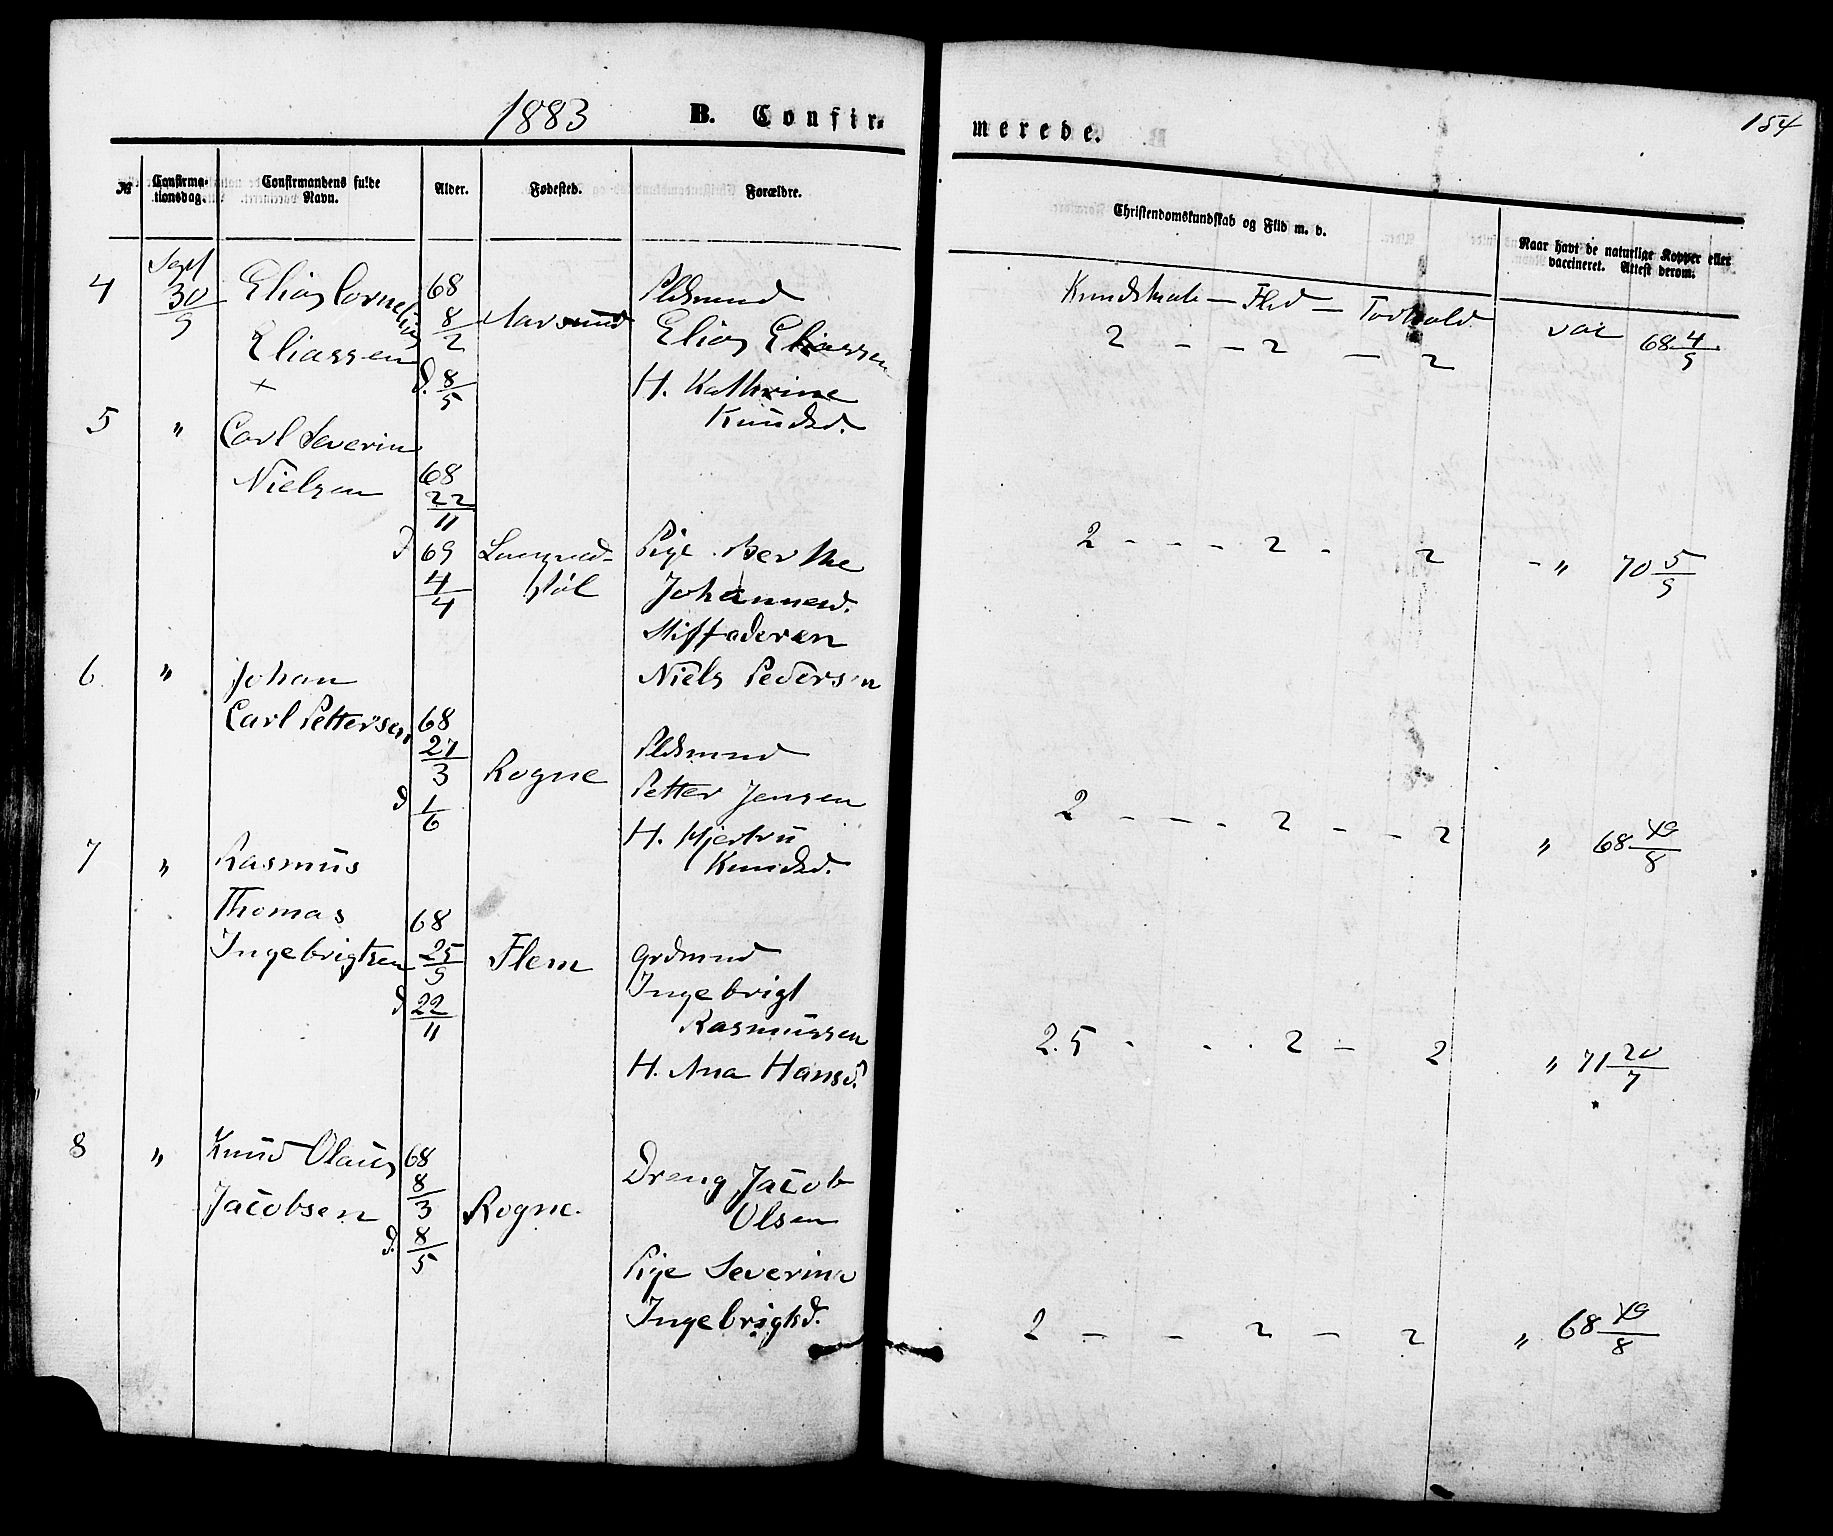 1883 B. Confir-
merede. 154
№ Confirma-tionsdag. Confirmandens fulde Navn. Alder. Fødested. Forældre.
Christendomskundskab og Flid m. v. Naar havt de naturlige Kopper eller vaccineret. Attest derom.
Kundskab — Flid — Forhold
4 Sept 30/9 Elias Cornelius 68
8/2
Eliassen
+
d. 8/5
Pldsmand
Elias Eliassen
H. Kathrine
Knudsd.
2 — — 2 — 2 vac 68 4/9
5 " Carl Severin
Nielsen 68
22/11
d 69
4/4
støl
Pige Berthe
Johannesd.
Stiffaderen
Niels Pedersen
2 - - - 2 - 2 - " 70 5/9
6. " Johan
Carl Pettersen 68
27/3
d 1/6
Rogne
Pldsmand
Petter Jensen
H.
Knudsd.
2 - - - 2 - - 2 " 68 19/8
7 " Rasmus
Thomas 68
Ingebrigtsen 25/9
d 22/11
Flem
Grdmand
Ingebrigt
Rasmussen
H. Ana Hansd.
2.5 - - . 2 - 2 " 71 20/7
8 " Knud Olaus 68
8/3
Jacobsen
d. 8/5
Rogne.
Dreng Jacob
Olsen
Pige Severina
Ingebrigtsd.
2 — - 2 — 2 " 68 19/8